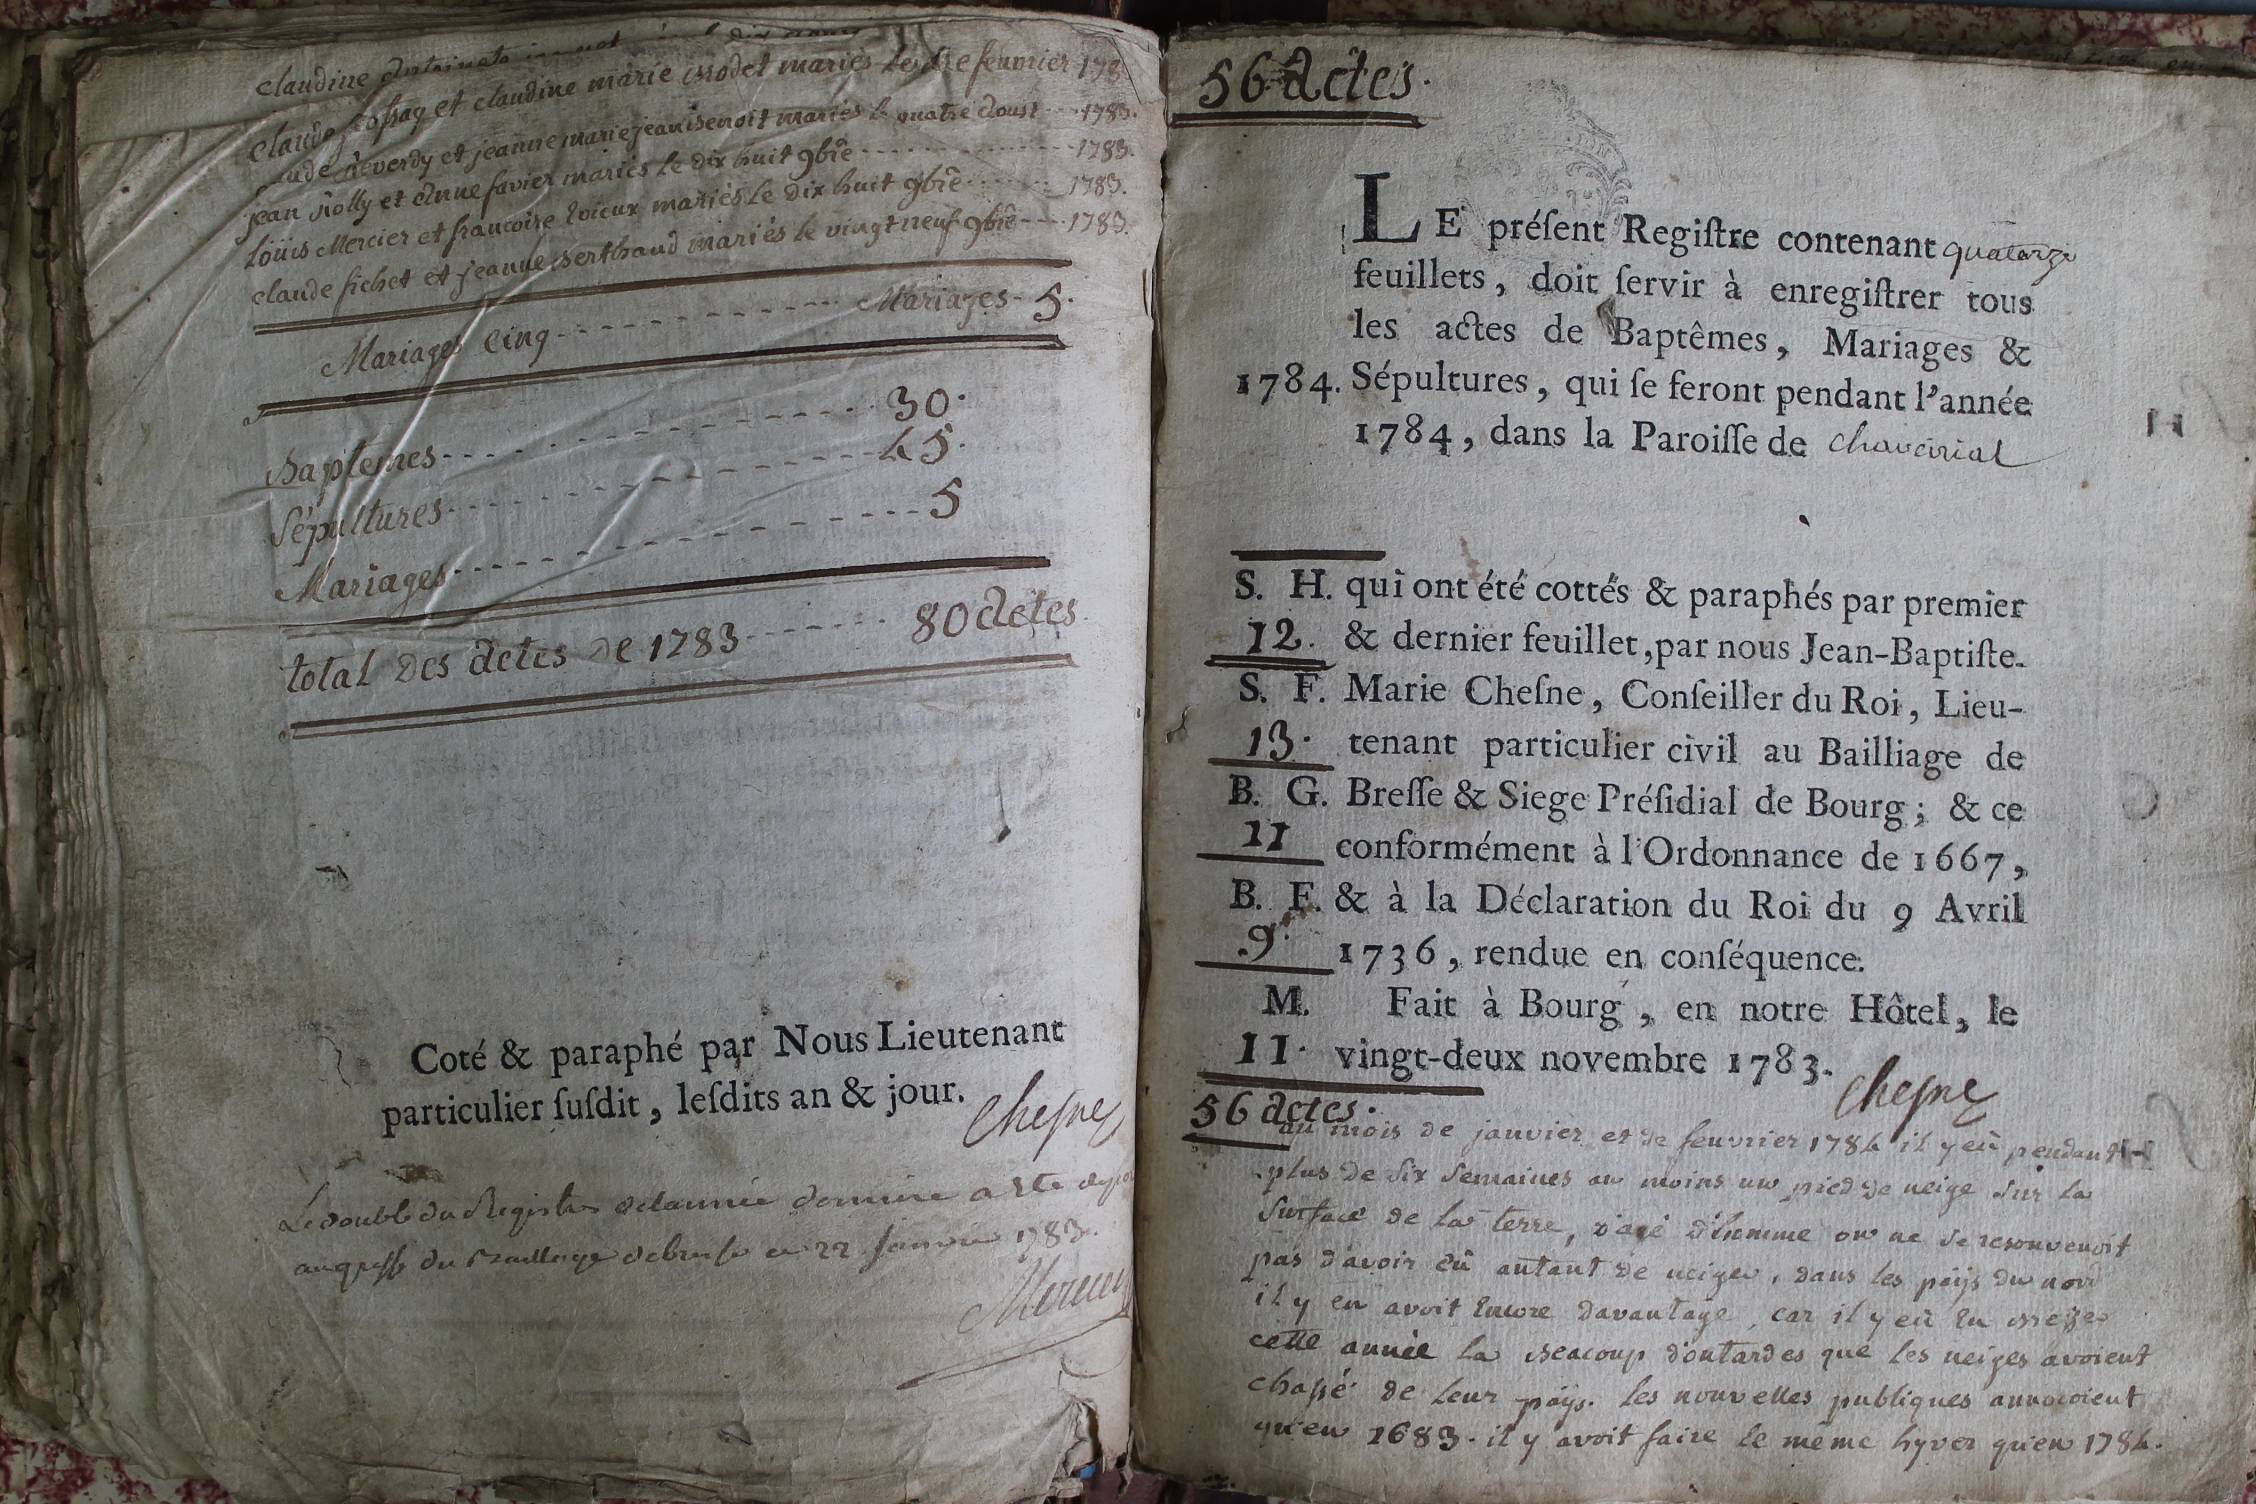 claudine antoinete
claude et claudine marie Brodet mariés le fevrier 178
claude Reverdy et jeanne marie jean Benoit mariés le quatre Aoust 1783.
jean Rolly et Anne favier mariés le dix huit 9bre 1783.
Loüis Mercier et francoise Loieux mariés le dix huit 9bre 1783.
claude fichet et jeanne Berthaud mariés le vingt neuf 9bre 1783.
Mariages cinq Mariages 5.
Baptemes 30.
Sépultures 45.
Mariages 5
total des actes de 1783 80 actes
Coté & paraphé par Nous Lieutenant
particulier ſuſdit, leſdits an & jour.
Cheſne
Le double du Registre de l'année derniere a ete
au greffe du Bailliage de bresse ce 22 janvier 1783.
Mercier
56 actes.
LE préſent Regiſtre contenant quatorze
feuillets, doit ſervir à enregiſtrer tous
les actes de Baptêmes, Mariages &
1784. Sépultures, qui ſe feront pendant l'année
1784, dans la Paroiſſe de chaveiriat
S. H. qui ont été cottés & paraphés par premier
12. & dernier feuillet, par nous Jean-Baptiſte-
S. F. Marie Cheſne, Conſeiller du Roi, Lieu-
13. tenant particulier civil au Bailliage de
B. G. Breſſe & Siege Préſidial de Bourg; & ce
11 conformément à l'Ordonnance de 1667,
B. F. & à la Déclaration du Roi du 9 Avril
9. 1736, rendue en conſéquence.
M. Fait à Bourg, en notre Hôtel, le
11. vingt-deux novembre 1783.
Cheſne
56 actes.
au mois de janvier et de fevrier 1784 il y eû pendant
plus de six semaines au moins un pied de neige sur la
surface de la terre, d'agé d'homme on ne se resouvenoit
pas d'avoir eû autant de neiges, dans les païjs du nord
il y en avoit encore davantage, car il y eû en Bresse
cette année la Beacoup d'outardes que les neiges avoient
chassé de leur païjs. les nouvelles publiques annocoient
qu'en 1683. il y avoit faire le même hyver qu'en 1784.